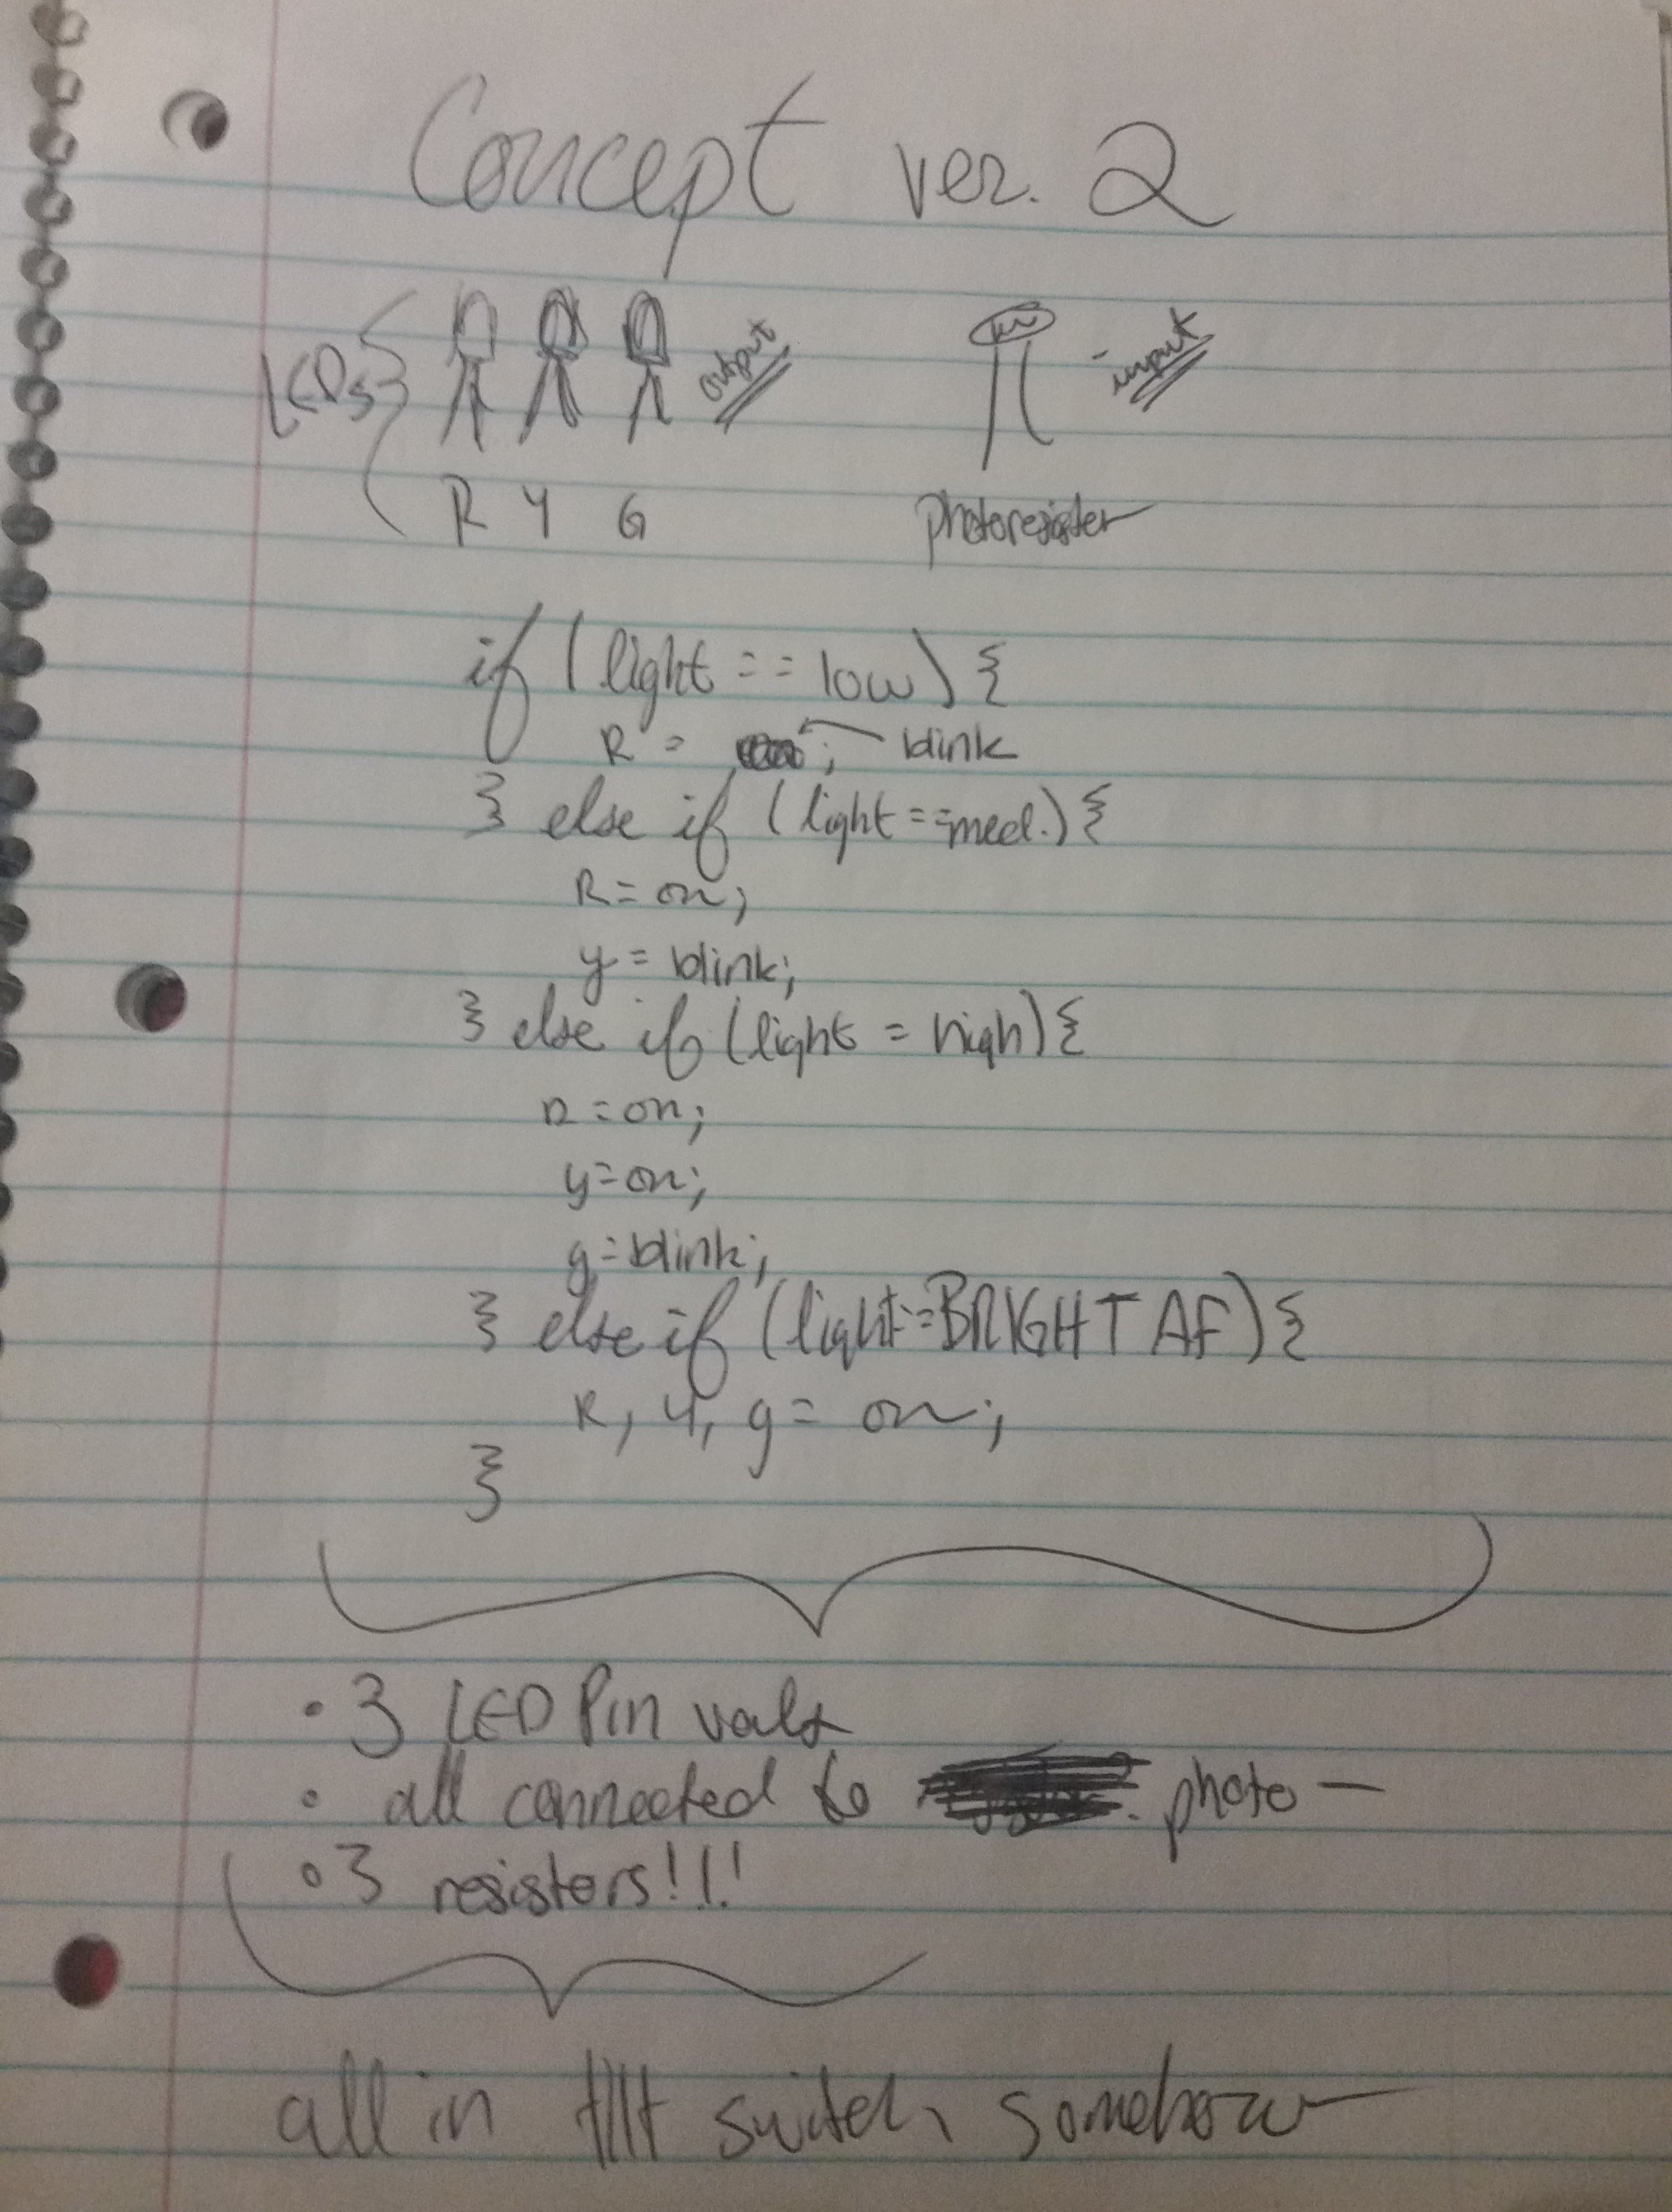 Concept ver. 2
LEDs
output
- input
R Y G
photoresister
if (light == low) {
R = ; blink
} else if (light == med.) {
R = on;
y = blink;
} else if (light = high) {
R = on;
y = on;
g = blink;
} else if (light = BRIGHT AF) {
R, Y, g = on;
}
• 3 LED Pin vals
• all connected to photo —
• 3 resistors!!!
all in tilt switch, somehow